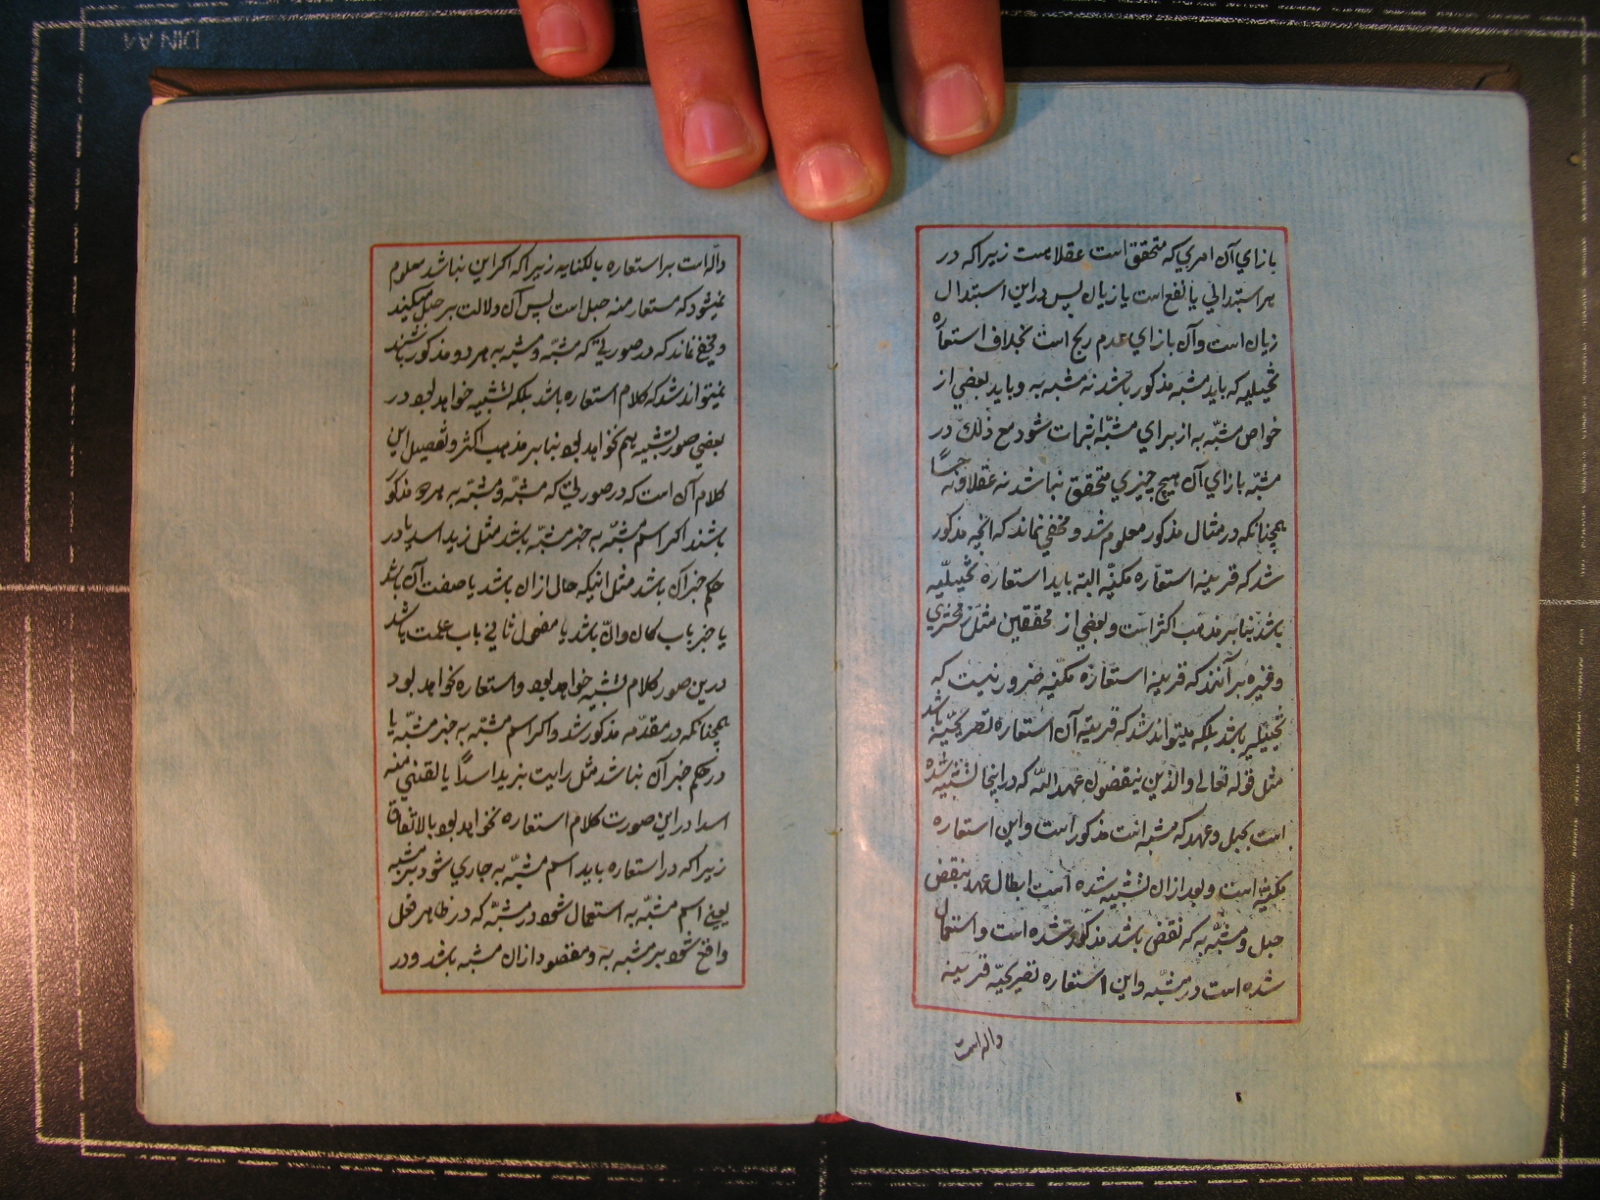 بازاي آن امري كه متحقق است عقلا هست زيراكه در
هر استبدالي يا نفع است يا زيان پس در اين استبدال
زيان است و آن بازاي عدم ربح است بخلاف استعاره
تخيليه كه بايد مشبه مذكور باشد نه مشبه به و بايد بعضي از
خواص مشبّه به از براي مشبّه اثبات شود مع ذلك در
مشبّه بازاي آن هيچ چيزي متحقق نباشد نه عقلا و نه حسًا
همچنانكه در مثال مذكور معلوم شد و مخفي نماند كه انچه مذكور
شد كه قرينه استعاره مكنيّه البته بايد استعاره تخييليّه
باشد بنابر مذهب اكثر است و بعضي از محققين مثل زمخشري
و غيره بر آنند كه قرينه استعاره مكنيه ضرور نيست كه
تخييليه باشد بلكه ميتواند شد كه قرينه آن استعاره تصريحيّه باشد
مثل قوله تعالى والذين ينقضون عهد اللّه كه در اينجا تشبيه شده
است بحبل و عهد كه مشبه است مذكور است و اين استعاره
مكنيّه است و بعد از ان تشبيه شده است ابطال عهد بنقض
حبل و مشبّه به كه نقض باشد مذكور شده است و استعمال
شده است در مشبّه و اين استعاره تصريحيّه قرينه
داله است
دالّه است بر استعاره بالكنايه زيراكه اكر اين نباشد معلوم
نميشود كه مستعار منه حبل است پس آن دلالت بر حبل ميكند
و مخفي نماند كه در صورتي كه مشبّه و مشبّه به هر دو مذكور باشند
نميتواند شد كه كلام استعاره باشد بلكه تشبيه خواهد بود و در
بعضي صور تشبيه هم نخواهد بود بنابر مذهب اكثر و تفصيل اين
كلام آن است كه در صورتي كه مشبّه و مشبّه به هر دو مذكور
باشند اكر اسم مشبّه به خبر مشبّه باشد مثل زيد اسد يا در
حكم خبر آن باشد مثل اينكه حال از ان باشد يا صفت آن باشد
يا خبر باب كان و انّ باشد يا مفعول ثاني باب علمت باشد
درين صور كلام تشبيه خواهد بود و استعاره نخواهد بود
همچنانكه در مقدّمه مذكور شد و اكر اسم مشبّه به خبر مشبّه يا
در حكم خبر آن نباشد مثل رايت بزيد اسدًا يا لقيني منه
اسد در اين صورت كلام استعاره نخواهد بود بالاتفاق
زيراكه در استعاره بايد اسم مشبّه به جاري شود بر مشبه
يعني اسم مشبّه به استعمال شود در مشبّه كه در ظاهر فعل
واقع شود بر مشبه به و مقصود از ان مشبه باشد و در